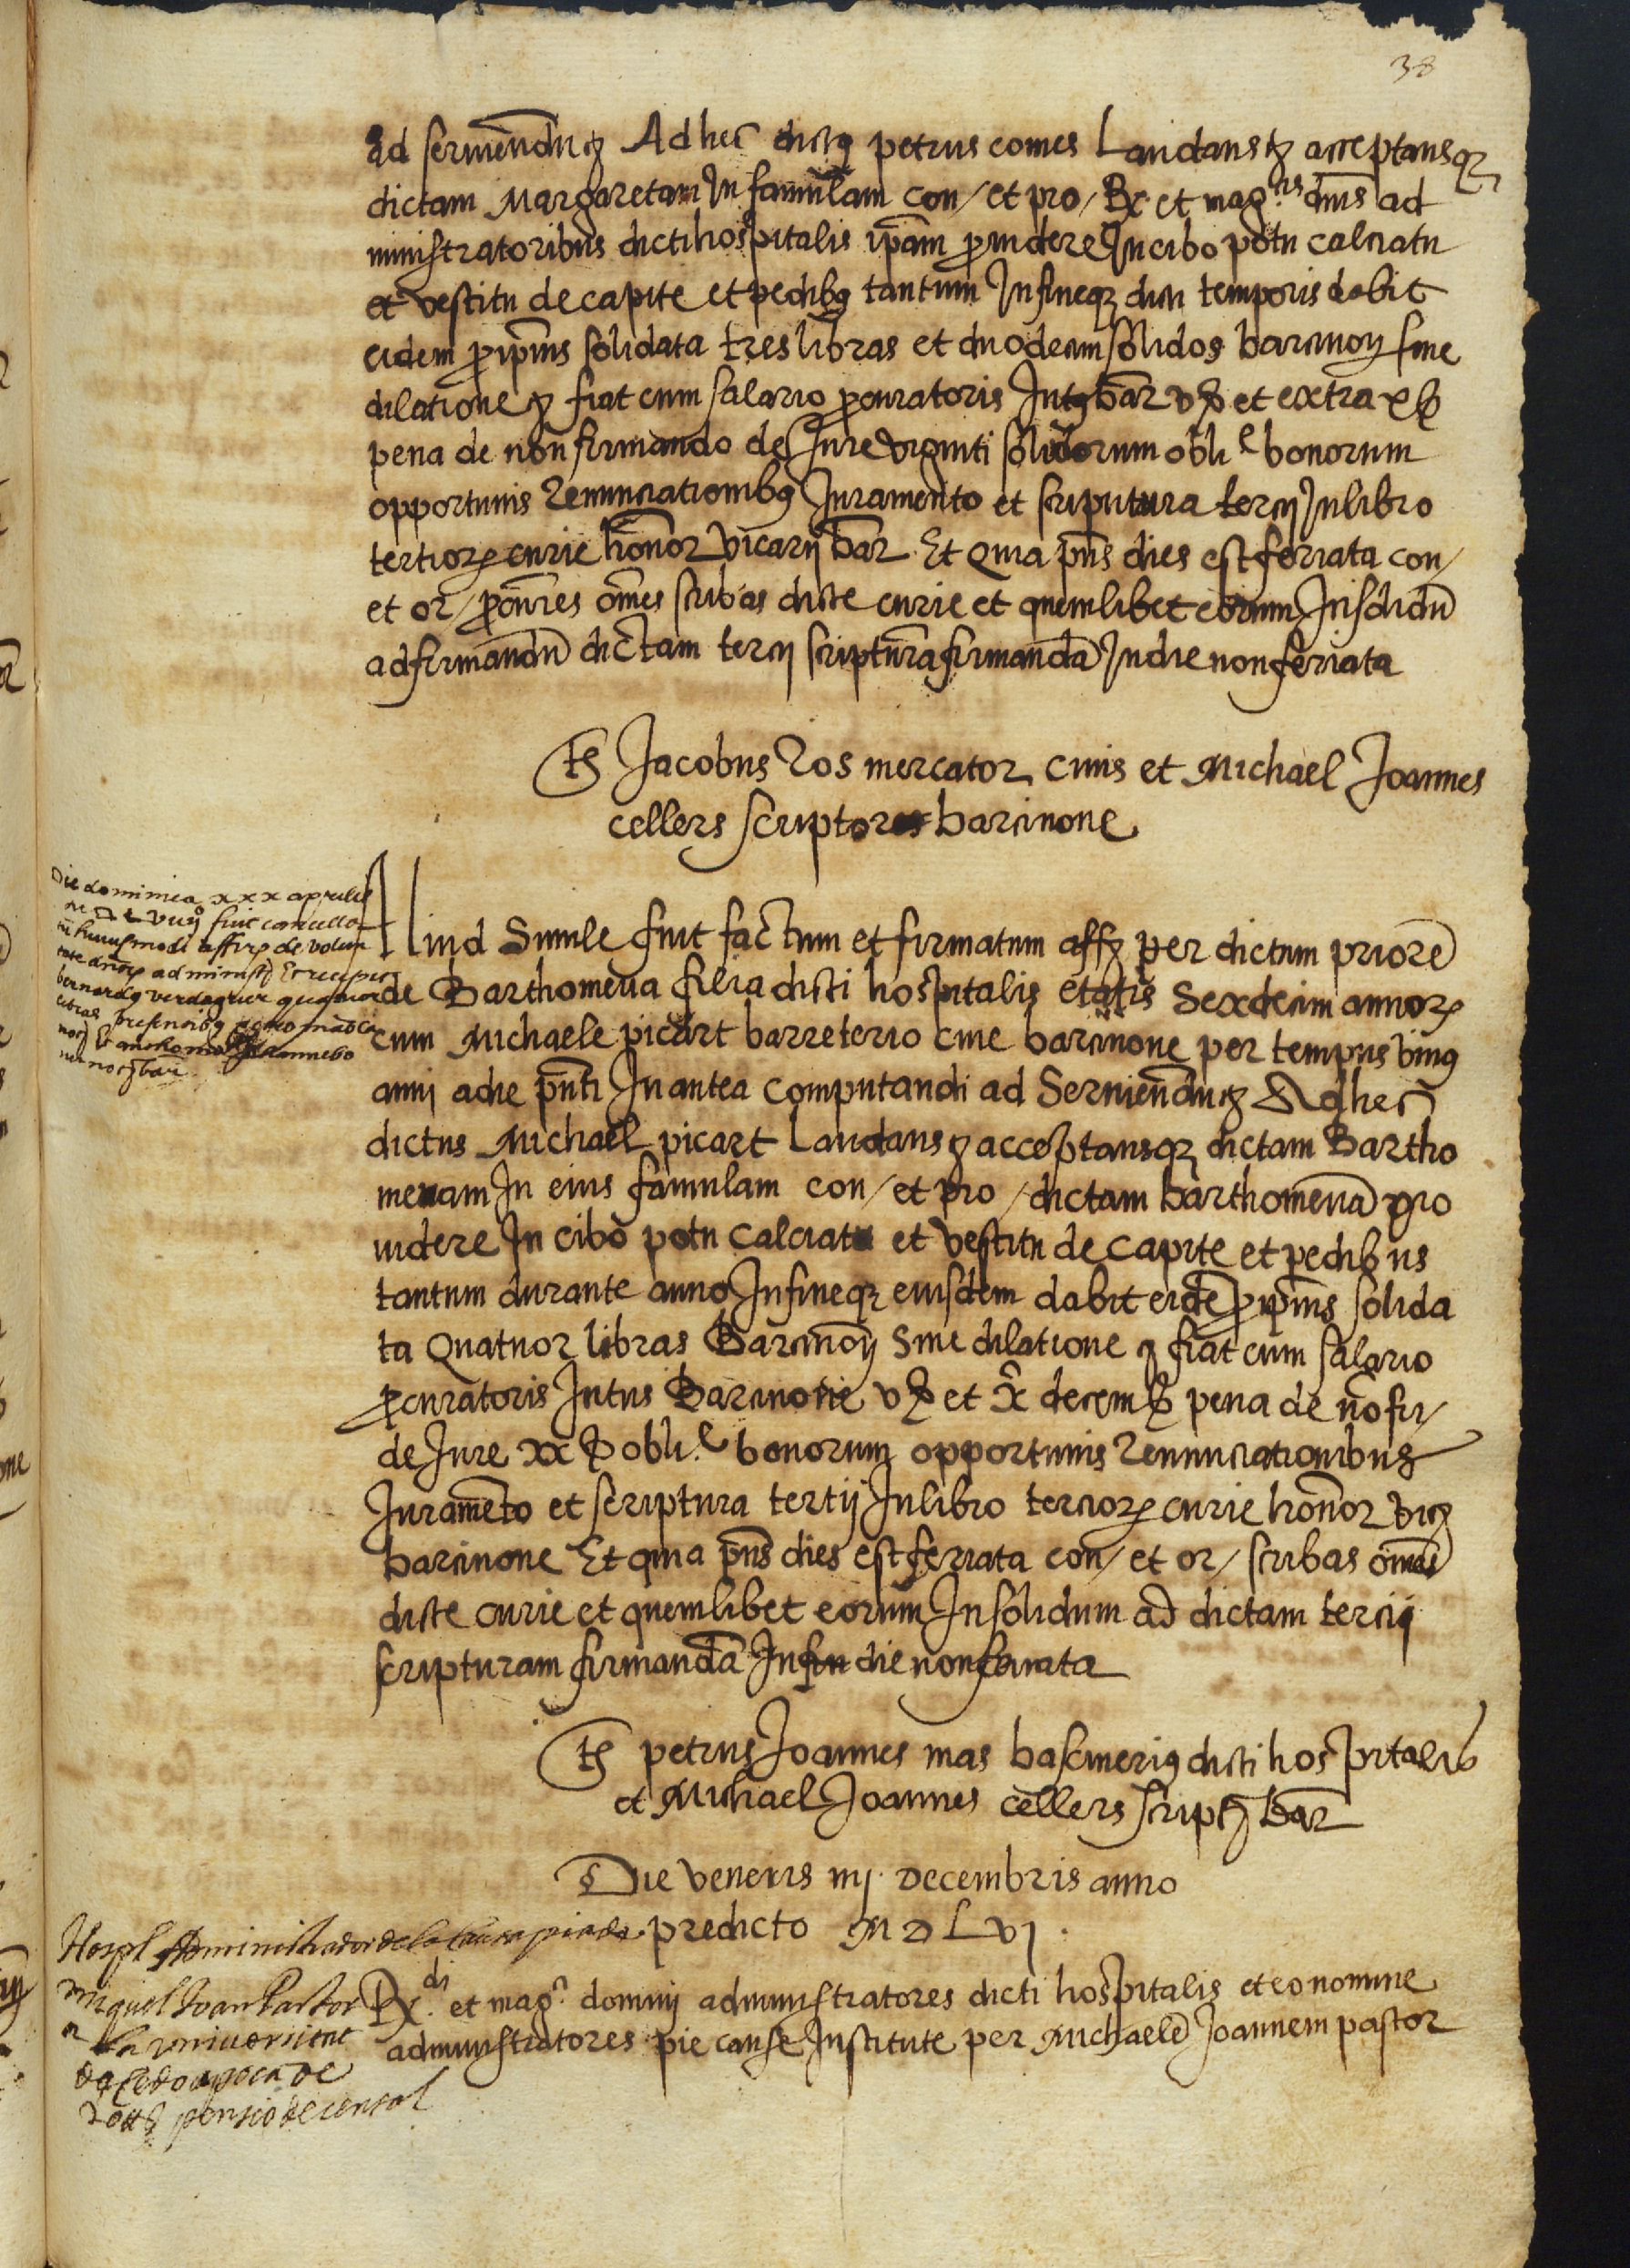 38
ad serviendũ ꝫ Ad hec dictꝰ petrus comes Laudans ꝫ acceptansqꝫ
dictam Margaretam In famulam con / et pro / Rx et mag.cis dnis ad
ministratoribus dicti hospitalis ipãm ꝓuidere In cibo potu calciatu
et vestitu de capite et pedibꝰ tantum In fineqꝫ dicti temporis dabit
eidem ꝓ ipĩus solidata tres libras et duodecim solidos barcinoñ sine
dilatione ꝫ fiat cum salario ꝓcuratoris Intꝰ bar̃ vꝫ et extra xꝫ
pena de non firmando de Jure viginti solidorum obli.e bonorum
opportunis Renunciationibꝰ Juramento et scriptura tercij In libro
tertioꝝ curie honor̃ Vicarij bar̃ Et Quia pñs dies est feriata con /
et or / ꝓcur̃es om̃es scribas dicte curie et quemlibet eorum In solidũ
ad firmandũ dictam tercij scripturã firmandã In die non feriata
tꝭ Jacobus Ros mercator ciuis et Michael Joannes
cellers scriptores barcinone
Die dominica xxx aprilis
fuit cancella
tũ huiusmodi affir̃ de volun
tate dnoꝝ administ̃
bernardꝰ verdaguer quatuor
libras presentibꝰ
Aliud Simile fuit factum et firmatum aff̃ ꝫ per dictum priorẽ
de Barthomeua filia dicti hospitalis etatis Sexdecim annoꝝ
cum Michaele picart barreterio ciue barcinone per tempus vniꝰ
anni a die pñti In antea computandi ad Seruiendũ ꝫ Ad hec
dictus Michael picart Laudans ꝫ acceptansqꝫ dictam Bartho
meuam In eius famulam con / et pro / dictam barthomeuã pro
uidere In cibo potu calciatu et vestitu de capite et pedibus
tantum durante anno In fineqꝫ eiusdem dabit eidẽ ꝓ ipĩus solida
ta Quatuor libras Barcinoñ Sine dilatione ꝫ fiat cum salario
ꝓcuratoris Intus Barcinone vꝫ et x̃ decem ꝫ pena de nõ fir /
de Jure xx ꝫ obli.e bonorum opportunis Renunciationibus
Juramẽto et scriptura tertij In libro tercioꝝ curie honor̃ vicꝫ
barcinone Et quia pñs dies est feriata con / et or / scribas om̃es
dicte curie et quemlibet eorum In solidum ad dictam tercij
scripturam firmandã In fin die non feriata
tꝭ petrus Joannes mas bacineriꝰ dicti hospitalis
et Michael Joannes cellers scriptꝫ bar̃
Die veneris iiij decembris anno
predicto M D L vj.
Hospl Administrador de la causa pia de
miquel Joan Pastor
a la universitat
apoca de
pensio de censal
Rx.di et mag.ci domini administratores dicti hospitalis et eo nomine
administratores pie cause Institute per Michaelẽ Joannem pastor